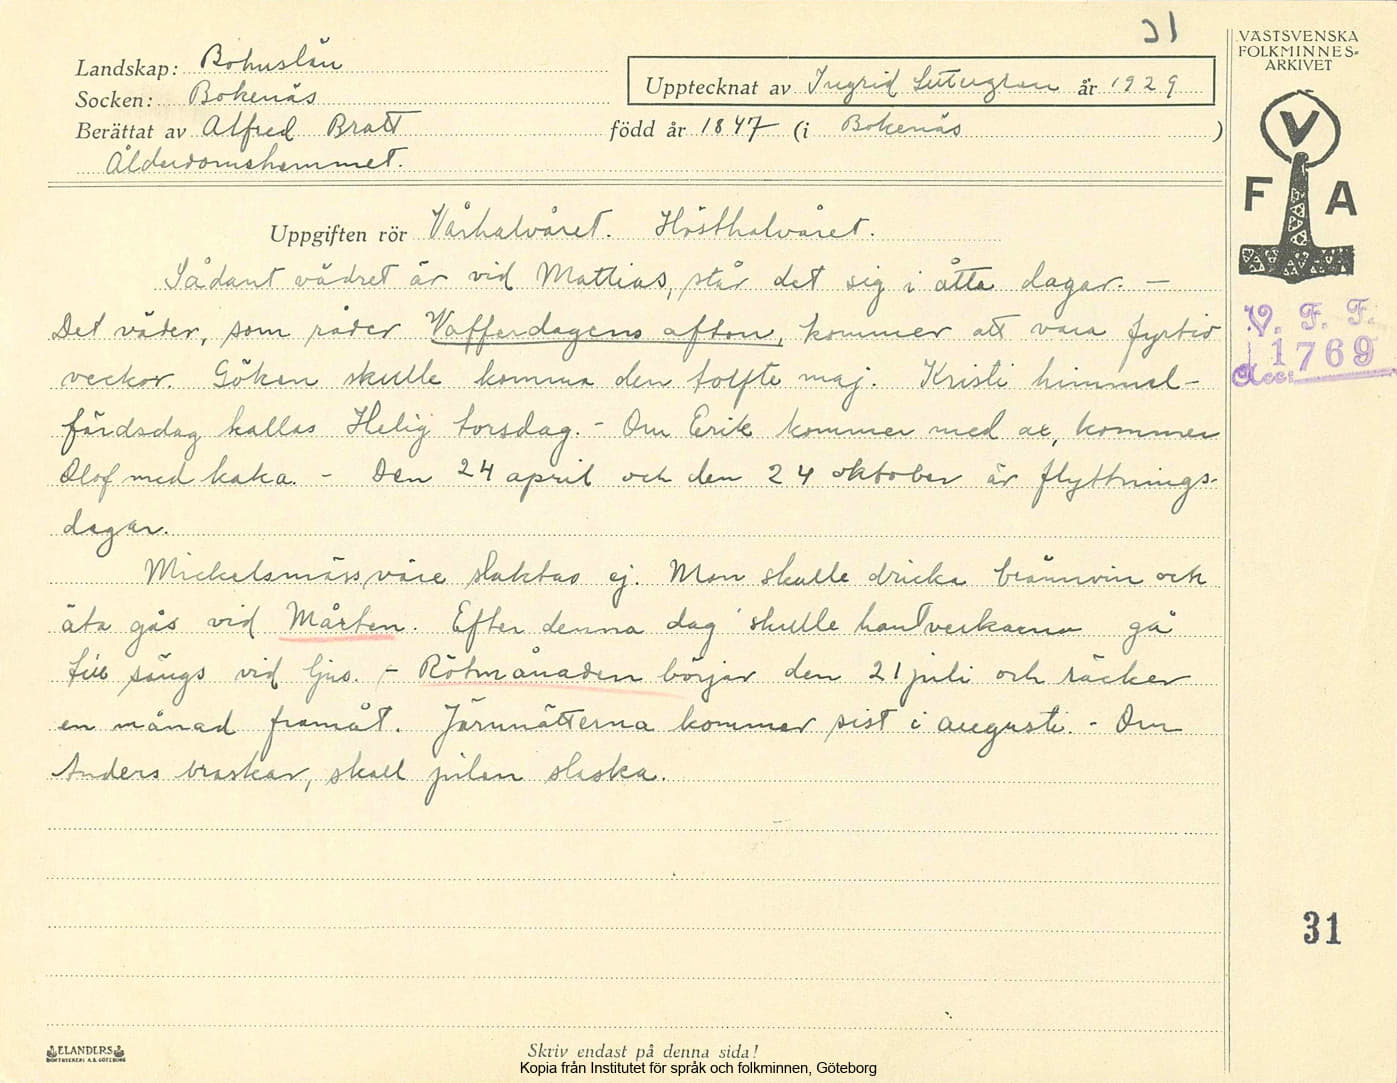 31
VÄSTSVENSKA
FOLKMINNES-
ARKIVET
Landskap: Bohuslän
Socken: Bokenäs
Upptecknat av Ingrid år 1929
Berättat av Alfred Bratt född år 1847 (i Bokenäs )
Ålderdomshemmet.
V
F A
Uppgiften rör Vårhalvåret. Hösthalvåret.
Sådant vädret är vid Mattias, står det sig i åtta dagar. -
Det väder, som råder Vafferdagens afton, kommer att vara fyrtio
veckor. Göken skulle komma den tolfte maj. Kristi himmel-
färdsdag kallas Helig torsdag. - Om Erik kommer med ax, kommer
Olof med kaka. - Den 24 april och den 24 oktober är flyttnings-
dagar.
Mickelsmäss slaktas ej. Man skulle dricka brännvin och
äta gås vid Mårten. Efter denna dag skulle hantverkarna gå
till sängs vid ljus. - Rötmånaden börjar den 21 juli och räcker
en månad framåt. Järnnätterna kommer sist i augusti. - Om
Anders braskar, skall julen slaska.
V. F. F.
Acc: 1769
31
ELANDERS
BOKTRYCKERI A.B. GÖTEBORG
Skriv endast på denna sida!
Kopia från Institutet för språk och folkminnen, Göteborg